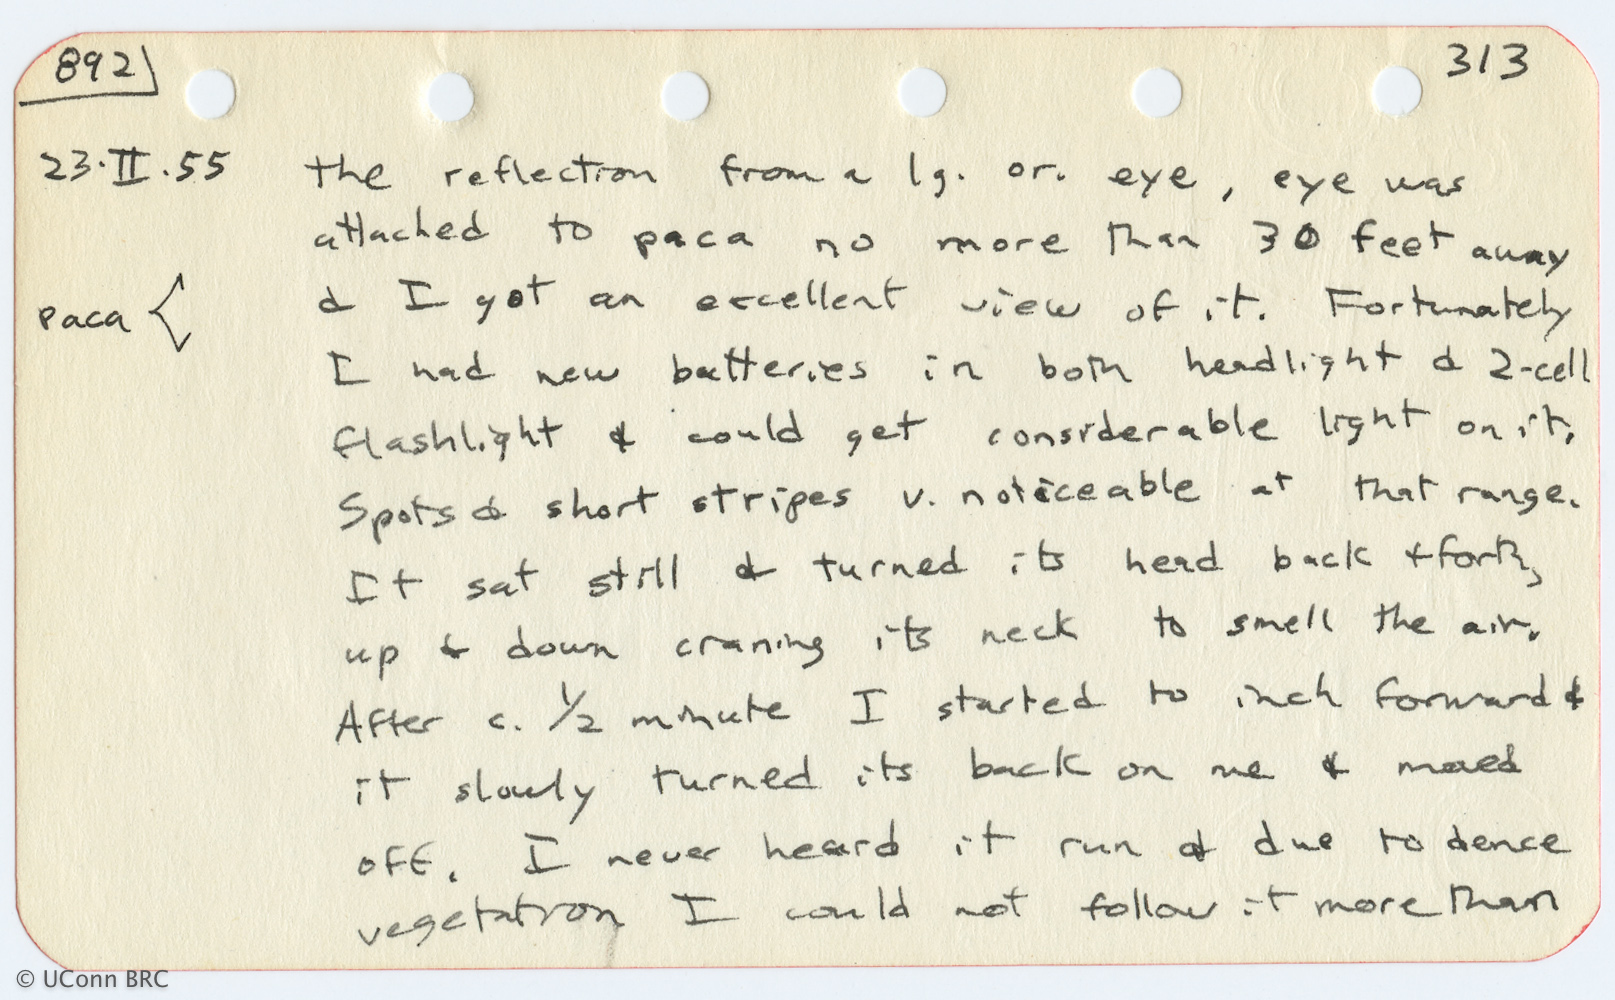 892
313
23·II·55 the reflection from a lg. or. eye, eye was
attached to paca no more than 30 feet away
& I got an excellent view of it. Fortunately
paca
I had new batteries in both headlight & 2-cell
flashlight & could get considerable light on it.
Spots & short stripes v. noticeable at that range.
It sat still & turned its head back + forth,
up & down craning its neck to smell the air.
After c. 1/2 minute I started to inch forward &
it slowly turned its back on me & moved
off. I never heard it run & due to dence
vegetation I could not follow it more than
© UConn BRC